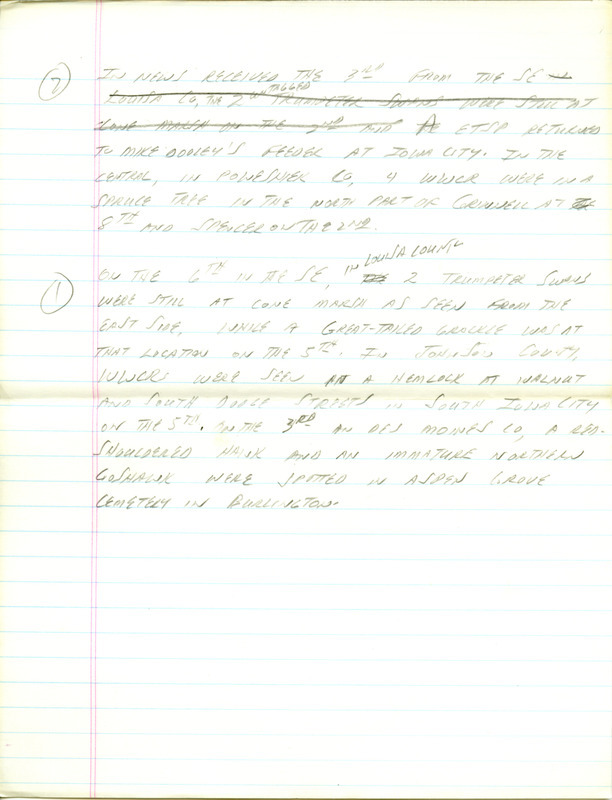 ② IN NEWS RECEIVED THE 3RD FROM THE SE
LOUISA CO, THE 2 TAGGED TRUMPETER SWANS WERE STILL AT
CONE MARSH ON THE 2ND AND A ETSP RETURNED
TO MIKE DOOLEY'S FEEDER AT IOWA CITY. IN THE
CENTRAL, IN POWESHIEK CO, 4 WWCR WERE IN A
SPRUCE TREE IN THE NORTH PART OF GRINNELL AT
8TH AND SPENCER ON THE 2ND.
① ON THE 6TH IN THE SE, IN LOUISA COUNTY 2 TRUMPETER SWANS
WERE STILL AT CONE MARSH AS SEEN FROM THE
EAST SIDE, WHILE A GREAT-TAILED GRACKLE WAS AT
THAT LOCATION ON THE 5TH. IN JOHNSON COUNTY,
WWCRS WERE SEEN IN A HEMLOCK AT WALNUT
AND SOUTH DODGE STREETS IN SOUTH IOWA CITY
ON THE 5TH. ON THE 3RD IN DES MOINES CO, A RED-
SHOULDERED HAWK AND AN IMMATURE NORTHERN
GOSHAWK WERE SPOTTED IN ASPEN GROVE
CEMETERY IN BURLINGTON.